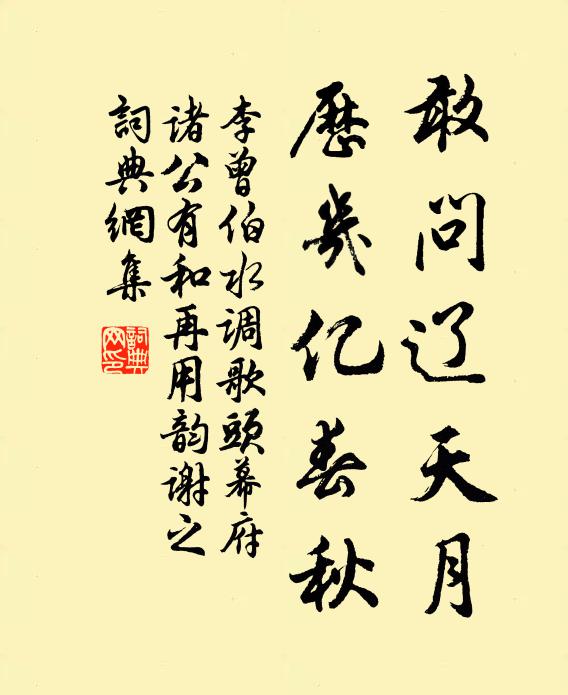 敢问辽天月
歷幾亿春秋
李曾伯水调歌頭幕府
诸公有和再用韵谢之
詞典網集
詞典网印